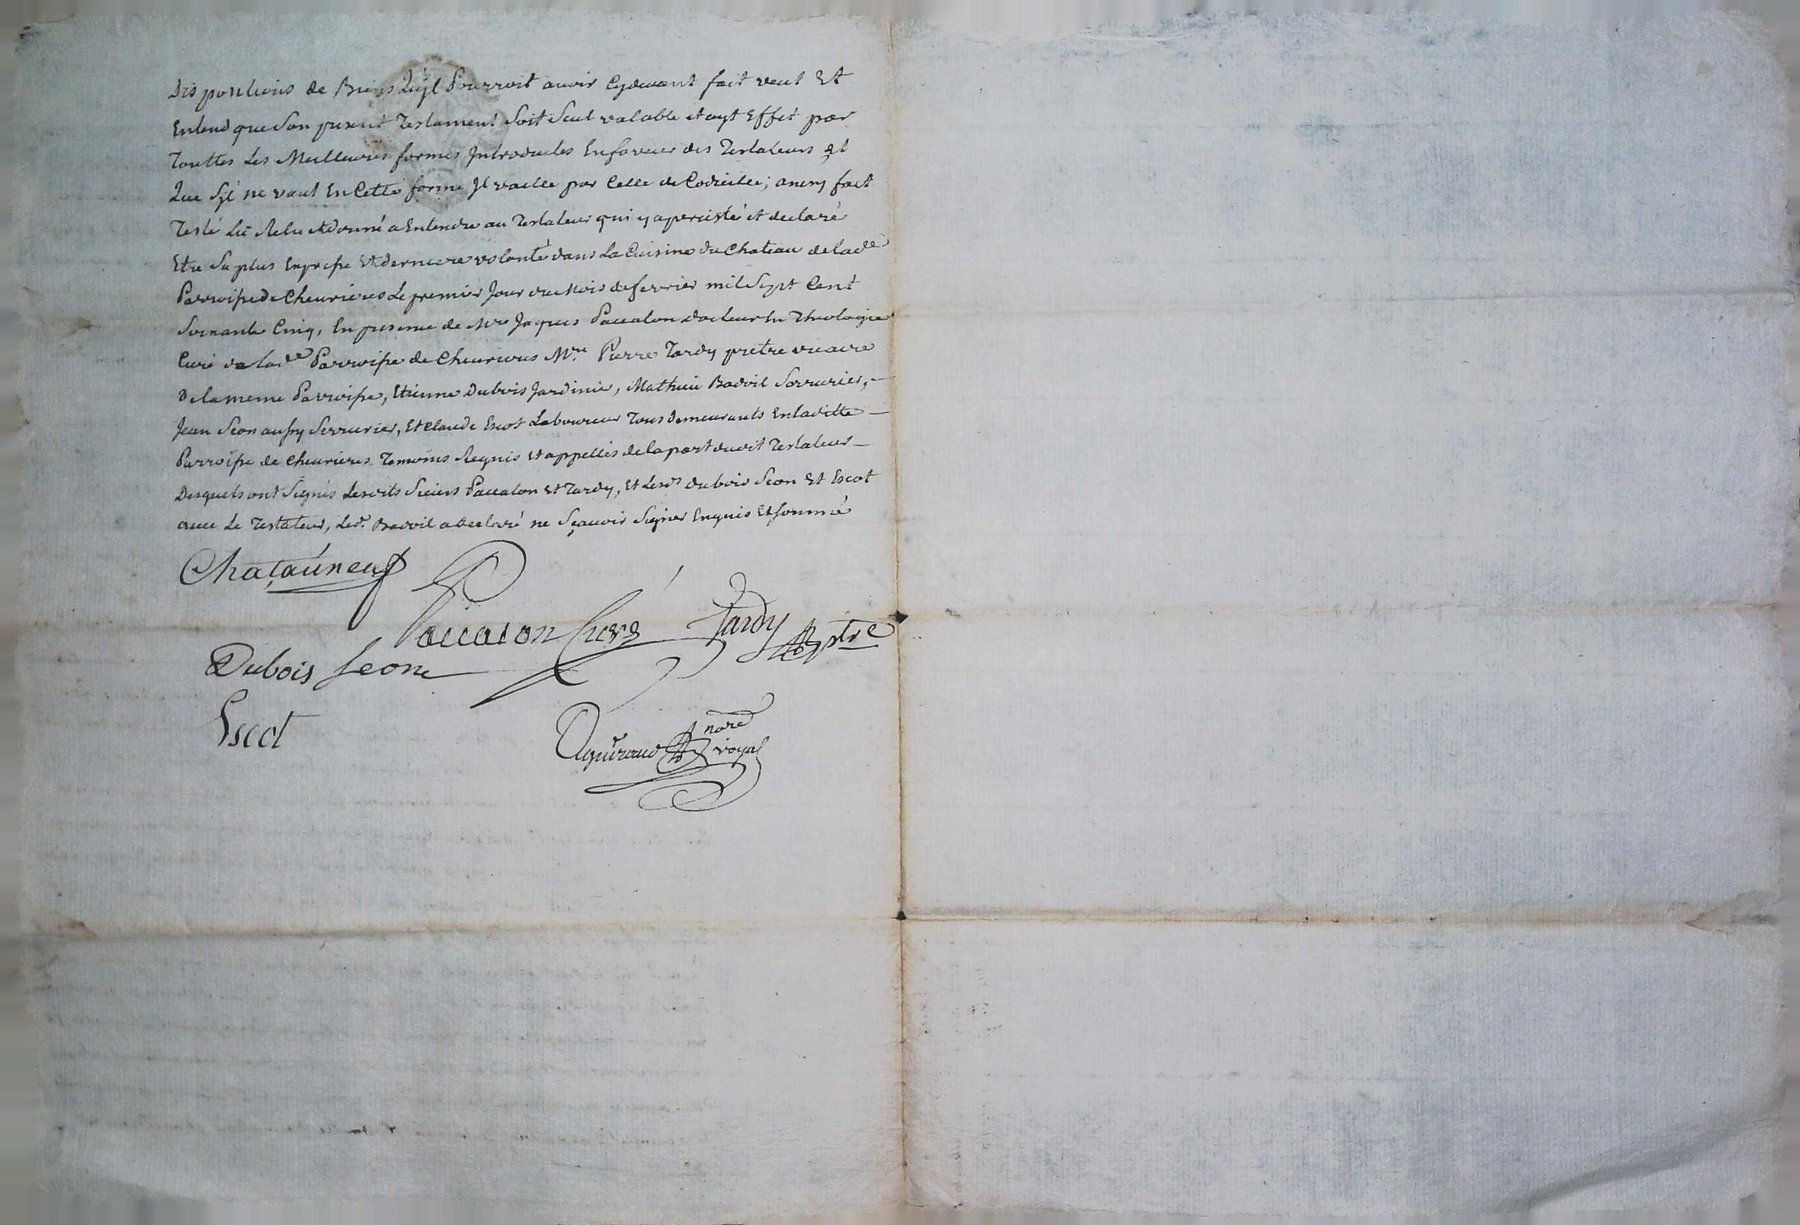 Dispositions de Biens Quyl Pourroit avoir Cydevant fait veut Et
Entend que Son present Testament Soit Seul valable et ayt Effet par
Touttes Les Meilleures formes Introduites En faveur des Testateurs et
Que Syl ne vaut En Cette forme Jl vaille par Celle de Codicille; ainsy fait
Testé Lû Relu et donné a Entendre au Testateur qui y a percisté et declaré
Etre Sa plus Expresse et derniere volonté dans La Cuisine du Chateau de lad.e
Parroisse de Chevrieres Le premier Jour du Mois de fevrier mil Sept Cent
Soixante Cinq, En presence de Mre Jaques Paccalon docteur En Theologie
Curé de lad.e Parroisse de Chevrieres Mre Pierre Tardy pretre vicaire
De la meme Parroisse, Etienne Dubois Jardinier, Mathieu Badoil Serrurier,
Jean Seon aussy Serrurier, Et Claude Escot Laboureur Tous demeurants En laditte
Parroisse de Chevrieres Temoins Requis et appellés de la part dudit Testateur
Desquels ont Signés Lesdits Sieurs Paccalon Et Tardy, Et Lesd.s dubois Seon Et Escot
avec Le Testateur, Led. Badoil a declaré ne Sçavoir Signer Enquis Et Sommé
Chataúneuf
Paccalon Curé Tardy ptre
Dubois Seon
Escot
nore
royal